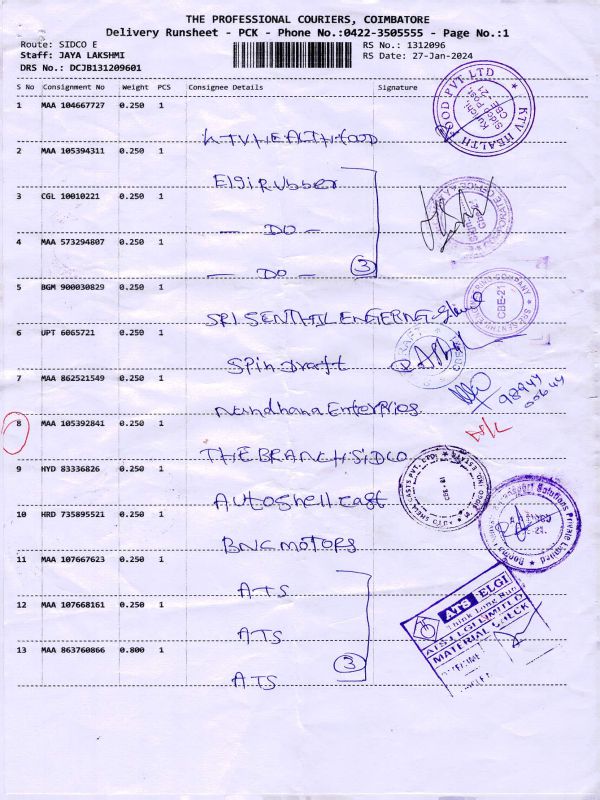 THE PROFESSIONAL COURIERS, COIMBATORE
Delivery Runsheet - PCK - Phone No.:0422-3505555 - Page No.:1
Route: SIDCO E
RS No.: 1312096
Staff: JAYA LAKSHMI
RS Date: 27-Jan-2024
DRS No.: DCJB131209601
S No Consignment No Weight PCS Consignee Details Signature
1 MAA 104667727 0.250 1
KTV HEALTH FOOD
2 MAA 105394311 0.250 1
Elgi Rubber
3 CGL 10010221 0.250 1
— DO —
4 MAA 573294807 0.250 1
— DO — 3
5 BGM 900030829 0.250 1
SRI.SENTHIL ENGERING
6 UPT 6065721 0.250 1
Spin draft
7 MAA 862521549 0.250 1
Nandhana Enterpries
98944
8 MAA 105392841 0.250 1
THE BRANCH.SIDCO
9 HYD 83336826 0.250 1
Autoshell cast
10 HRD 735895521 0.250 1
BNC MOTORS
11 MAA 107667623 0.250 1
ATS
12 MAA 107668161 0.250 1
ATS
13 MAA 863760866 0.800 1
ATS 3
KTV HEALTH FOOD PVT. LTD
CBE-21
ATS ELGI
Think Long Run
ATS ELGI LIMITED
MATERIAL CHECK